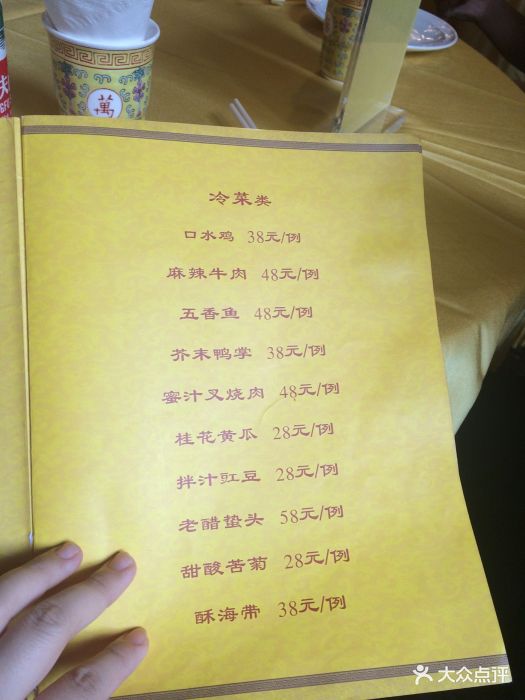 萬
冷菜类
口水鸡 38元/例
麻辣牛肉 48元/例
五香鱼 48元/例
芥末鸭掌 38元/例
蜜汁叉烧肉 48元/例
桂花黄瓜 28元/例
拌汁豇豆 28元/例
老醋蛰头 58元/例
甜酸苦菊 28元/例
酥海带 38元/例
大众点评